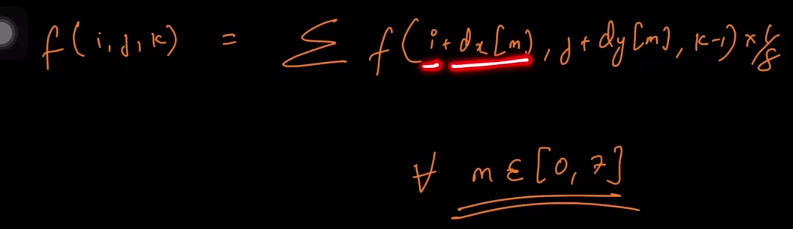 f(i,j,k) = Σ f(i+dx[m], j+dy[m], k-1) × 1/8
∀ m ε [0, 7]